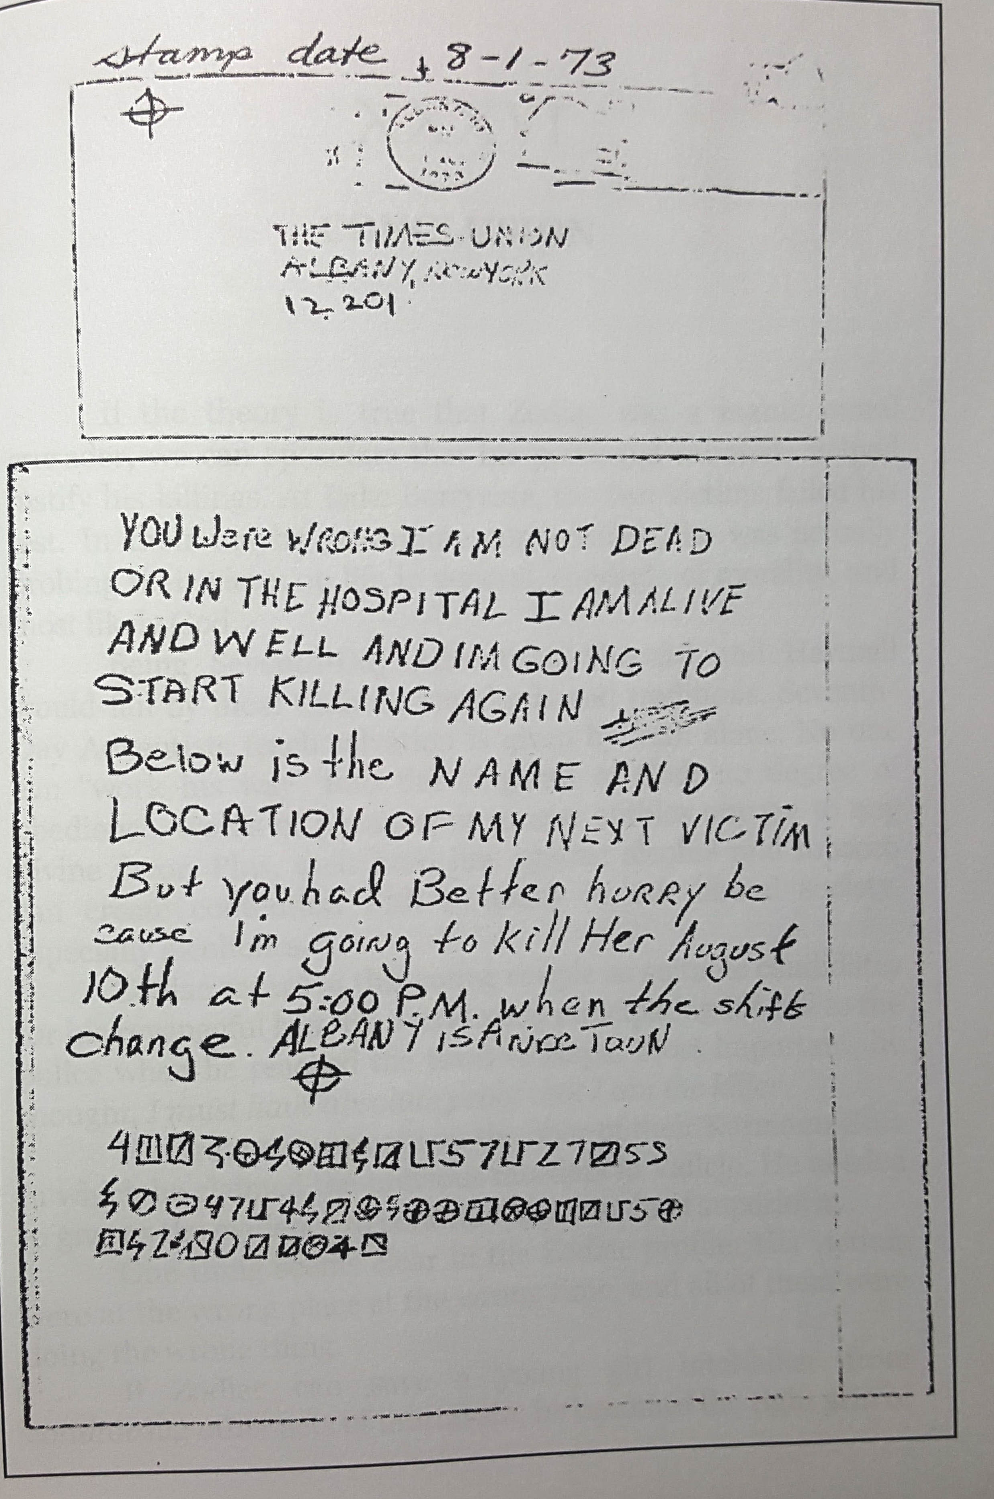 stamp date 8-1-73
THE TIMES-UNION
ALBANY, NEWYORK
12,201
YOU Were WRONG I AM NOT DEAD
OR IN THE HOSPITAL I AM ALIVE
AND WELL AND IM GOING TO
START KILLING AGAIN
Below is the NAME AND
LOCATION OF MY NEXT VICTIM
But you had Better hURRY be
cause I'm going to kill Her August
10th at 5:00 P.M. when the shift
change. ALBANY iS A Nice TOWN